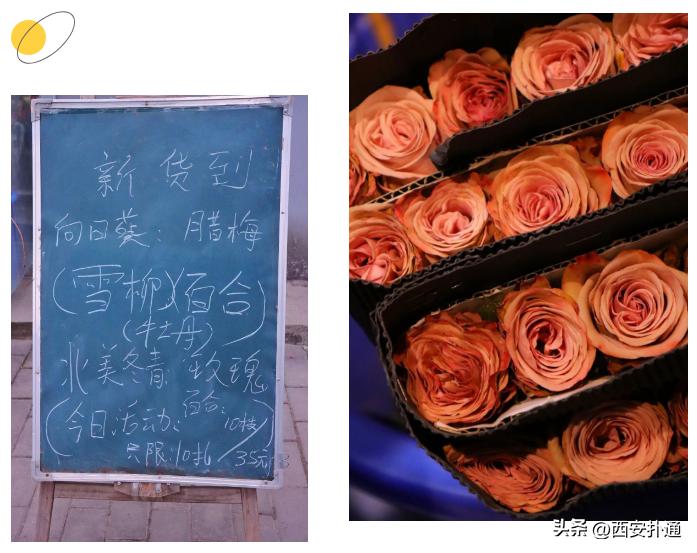 新货到
向日葵：腊梅
(雪柳)(百合)
(牡丹)
北美冬青 玫瑰
(今日活动：百合：10枝/35元
限：10扎
头条 @西安扑通